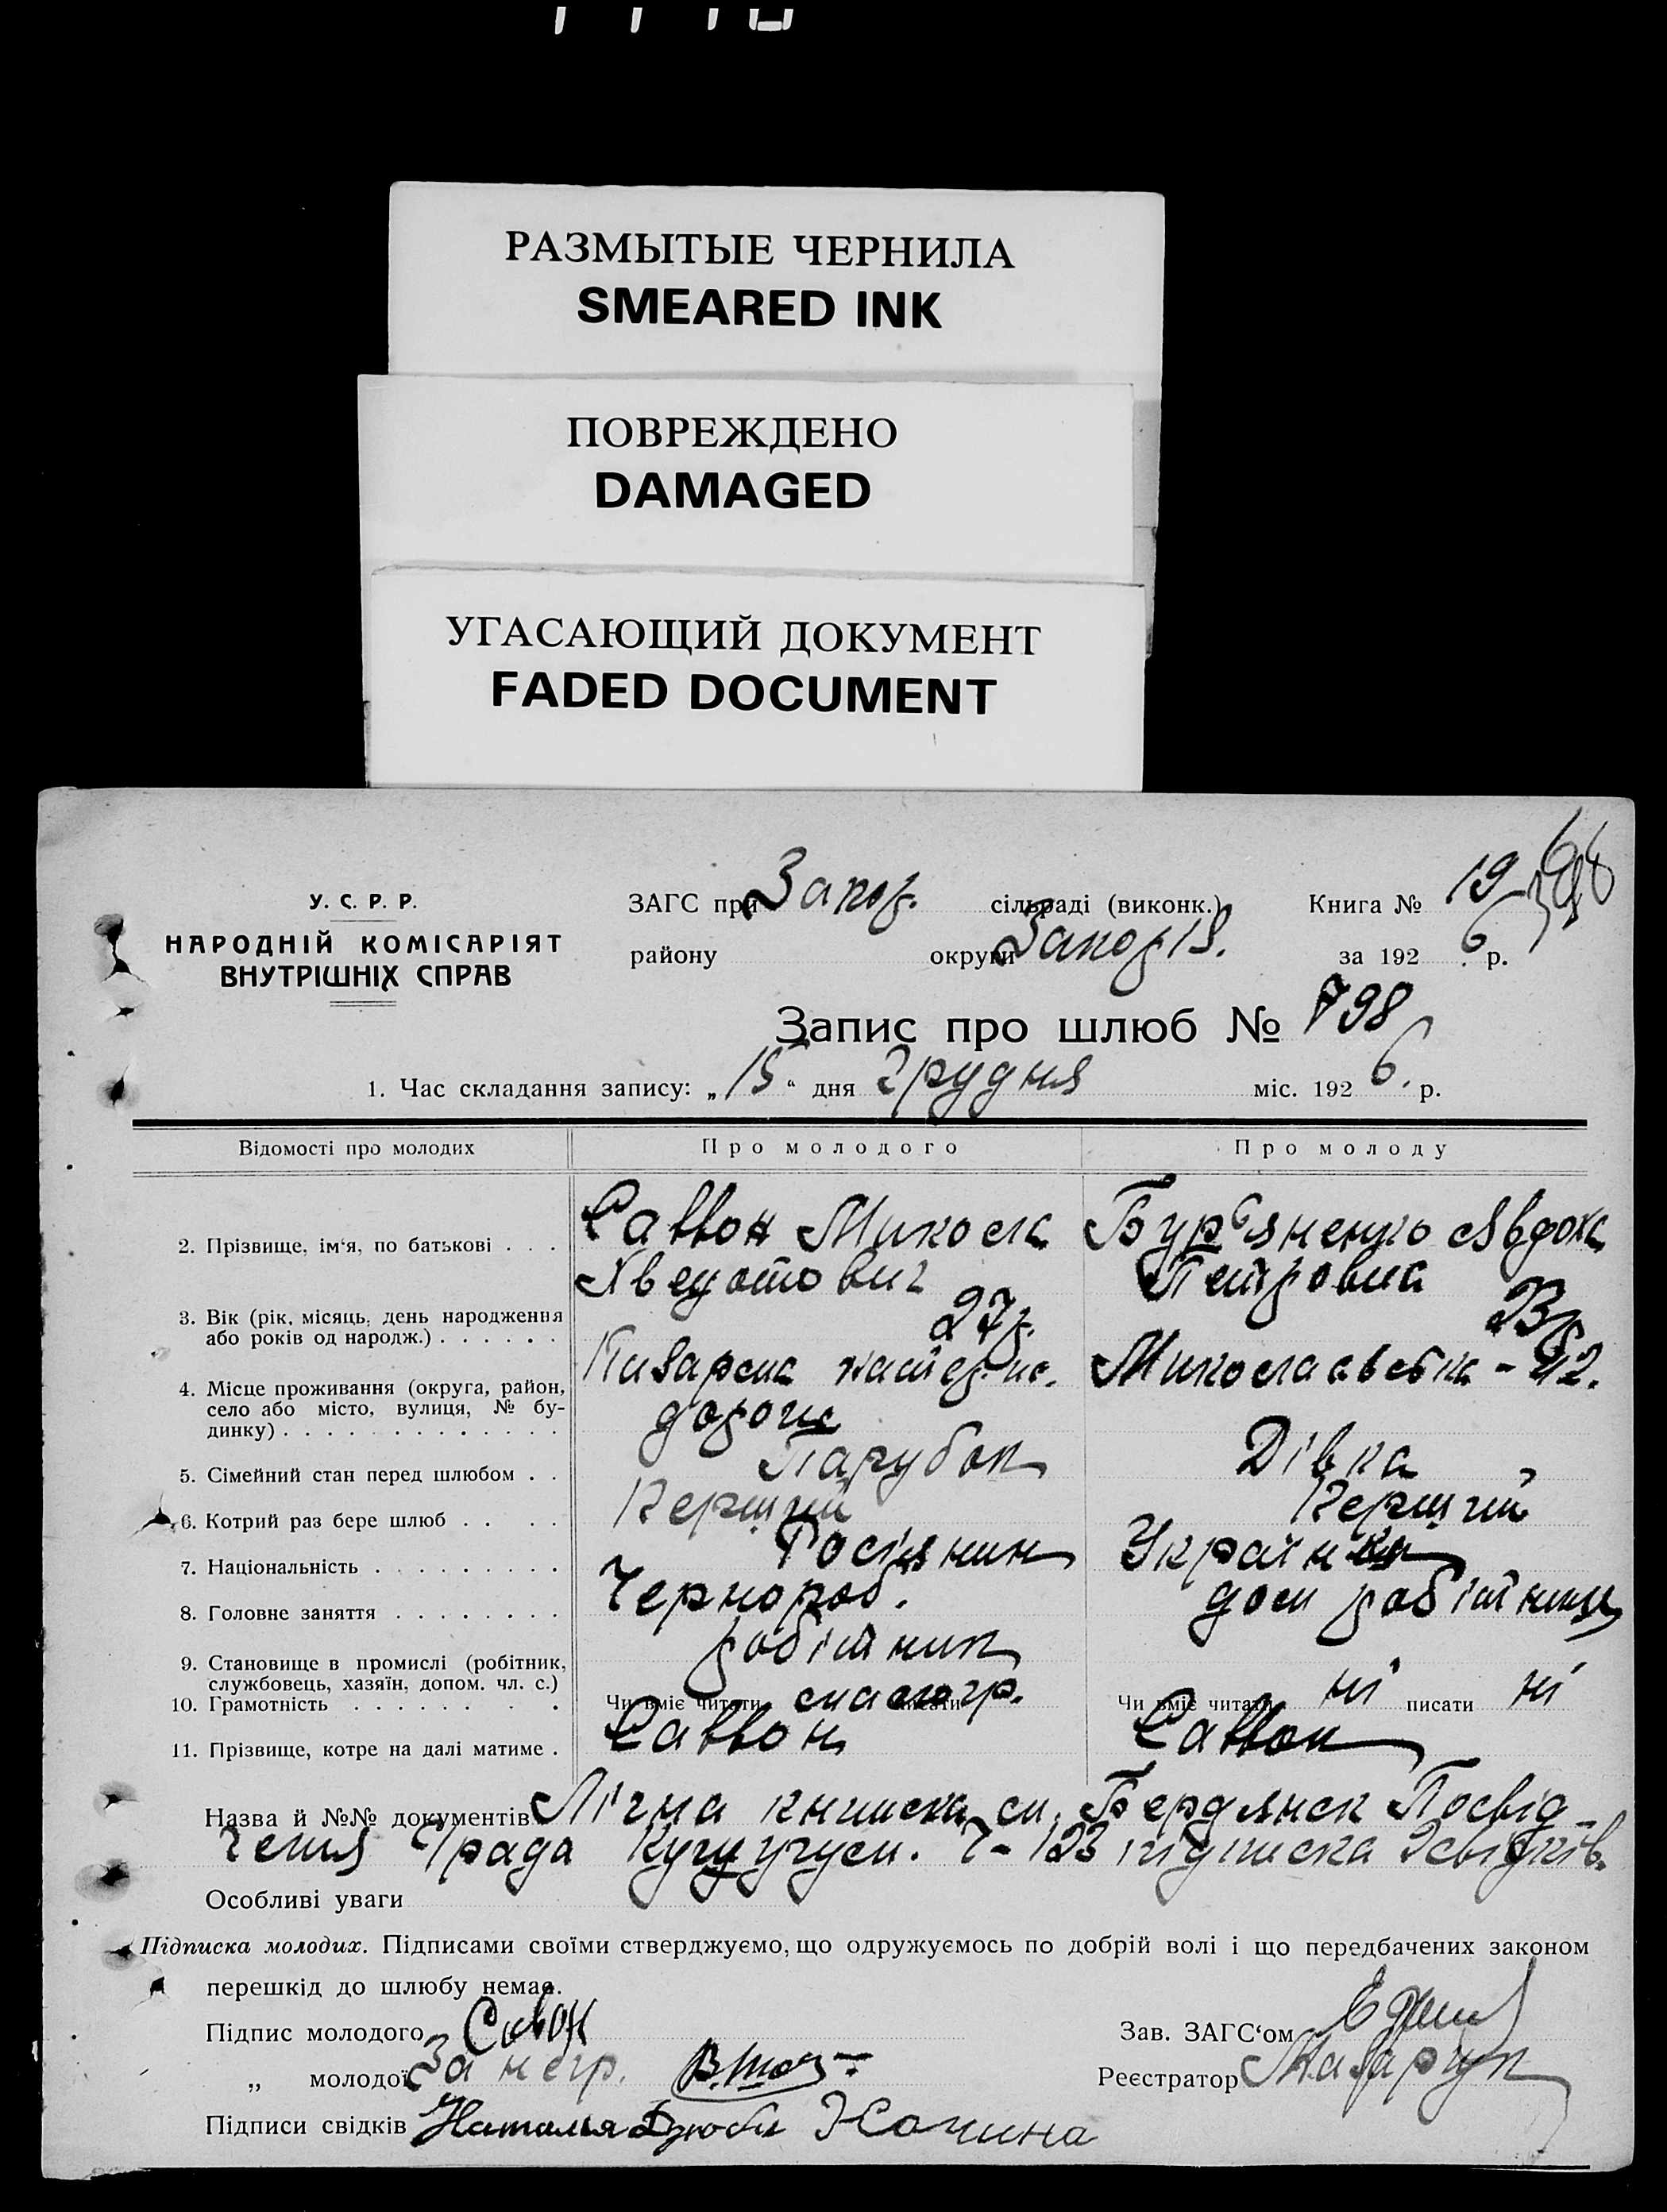 РАЗМЫТЫЕ ЧЕРНИЛА
SMEARED INK
ПОВРЕЖДЕНО
DAMAGED
УГАСАЮЩИЙ ДОКУМЕНТ
FADED DOCUMENT
У. С. Р. Р.
НАРОДНІЙ КОМІСАРІЯТ
ВНУТРІШНІХ СПРАВ
ЗАГС при Запор. сільраді (виконк.) Книга № 19
району округи Запоріз. за 1926 р.
Запис про шлюб № 798
1. Час складання запису: „15“ дня Грудня міс. 1926. р.
Відомості про молодих Про молодого Про молоду
2. Прізвище, ім‘я, по батькові . . . Саввон Микола Бур‘яненко Явдоха
Хведотович Петровна
3. Вік (рік, місяць, день народження 27р. 23р.
або років од народж.) . . . . . .
4. Місце проживання (округа, район, Миколаевська - 42.
село або місто, вулиця, № бу-
динку) . . . . . . . . . . . . .
5. Сімейний стан перед шлюбом . . Парубок Дівка
6. Котрий раз бере шлюб . . . . Перший Перший
7. Національність . . . . . . . . . Росіянин Українка
8. Головне заняття . . . . . . . . Чернороб. дом робітниця
9. Становище в промислі (робітник, робітник
службовець, хазяїн, допом. чл. с.)
10. Грамотність . . . . . . . . Чи вміє читати малогр. писати Чи вміє читати ні писати ні
11. Прізвище, котре на далі матиме . Саввон Саввон
Назва й №№ документів Лічна книжка м. Бердянск Посвід-
чення 7-123 підписка свідків.
Особливі уваги
Підписка молодих. Підписами своїми стверджуємо, що одружуємось по добрій волі і що передбачених законом
перешкід до шлюбу немає.
Підпис молодого Савон Зав. ЗАГС‘ом
„ молодої За негр. Реєстратор
Підписи свідків Наталья Дзюба